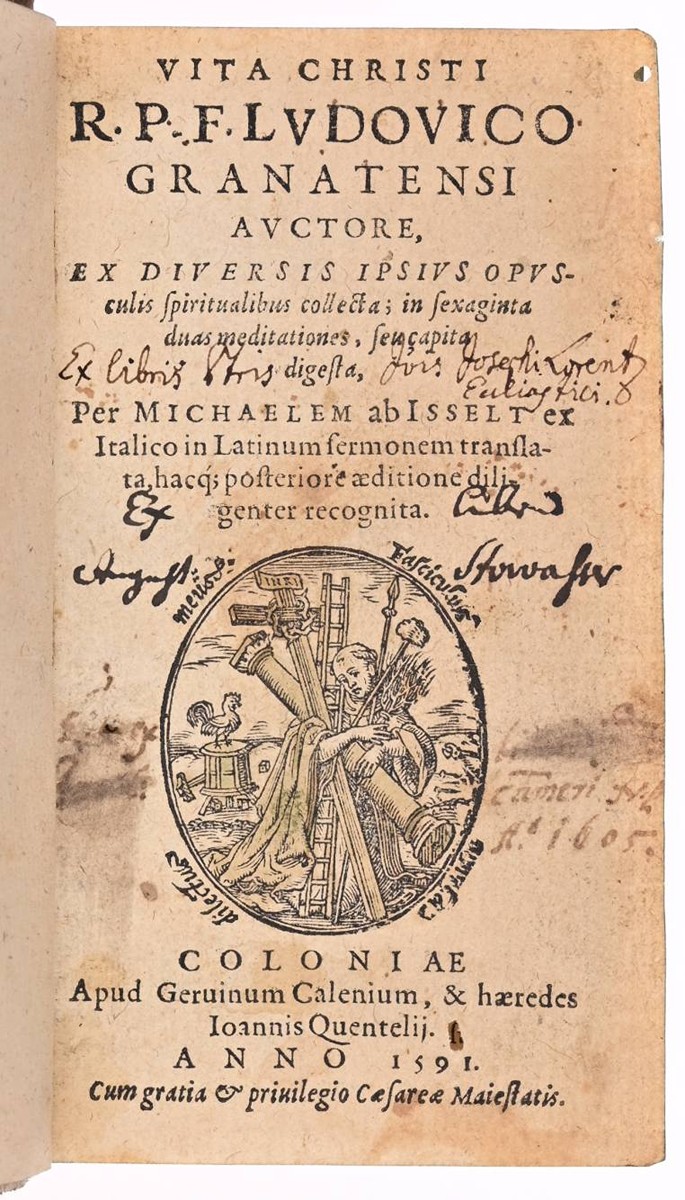 VITA CHRISTI
R. P. F. LVDOVICO
GRANATENSI
AVCTORE,
EX DIVERSIS IPSIVS OPVS-
culis ſpiritualibus collecta; in ſexaginta
duas meditationes, ſeu capita
digeſta,
Ex libris
Josephi
Per MICHAELEM ab ISSELT ex
Italico in Latinum ſermonem tranſla-
ta, hacq́; poſteriore æditione dili-
genter recognita.
Ex libris
August Stowasser
Faſciculus
INRI
dilectus
COLONIAE
Apud Geruinum Calenium, & hæredes
Ioannis Quentelij.
ANNO 1591.
Cum gratia & priuilegio Cæſareæ Maieſtatis.
1605.